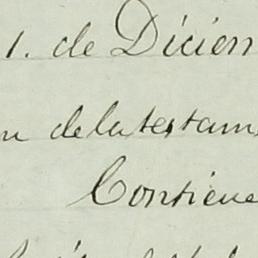 1. de Dicien
n de la testam
Contiene